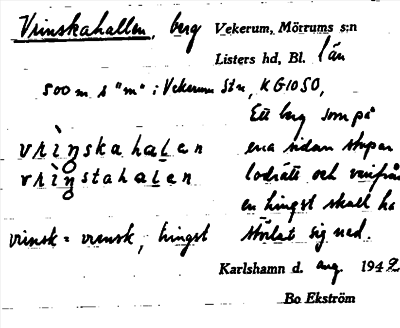 Vrinskahallen, berg Vekerum, Mörrums s:n
Listers hd, Bl. län
500 m s "m" i Vekerum Stn, KG1050,
Ett berg som på
vrìŋskahalen ena sidan stupar
vrìŋstahalen lodrätt och varifrån
en hingst skall ha
vrinsk = vrensk, hingst störtat sig ned.
Karlshamn d. aug. 1942
Bo Ekström